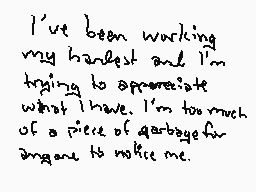 I've been working
my hardest and I'm
trying to appreciate
what I have. I'm too much
of a piece of garbage for
anyone to notice me.